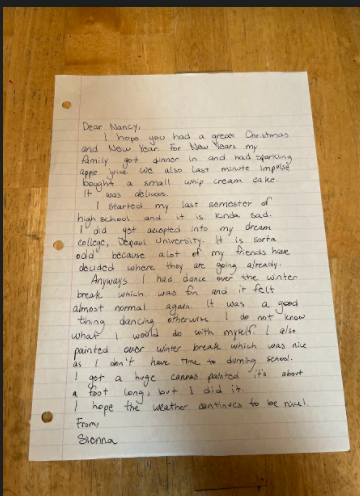 Dear Nancy,
I hope you had a great Christmas
and New Year. For New Years my
family got dinner in and had sparkling
apple juice. We also last minute impulse
bought a small whip cream cake.
It was delicous.
I started my last semester of
high school and it is kinda sad.
I did get accepted into my dream
college, Depaul University. It is sorta
odd because alot of my friends have
decided where they are going already.
Anyways I had dance over the winter
break which was fun and it felt
almost normal again. It was a good
thing dancing otherwise I do not know
what I would do with myself. I also
painted over winter break which was nice
as I don't have time to during school.
I got a huge canvas painted it's about
a foot long, but I did it.
I hope the weather continues to be nice!
From,
Sienna